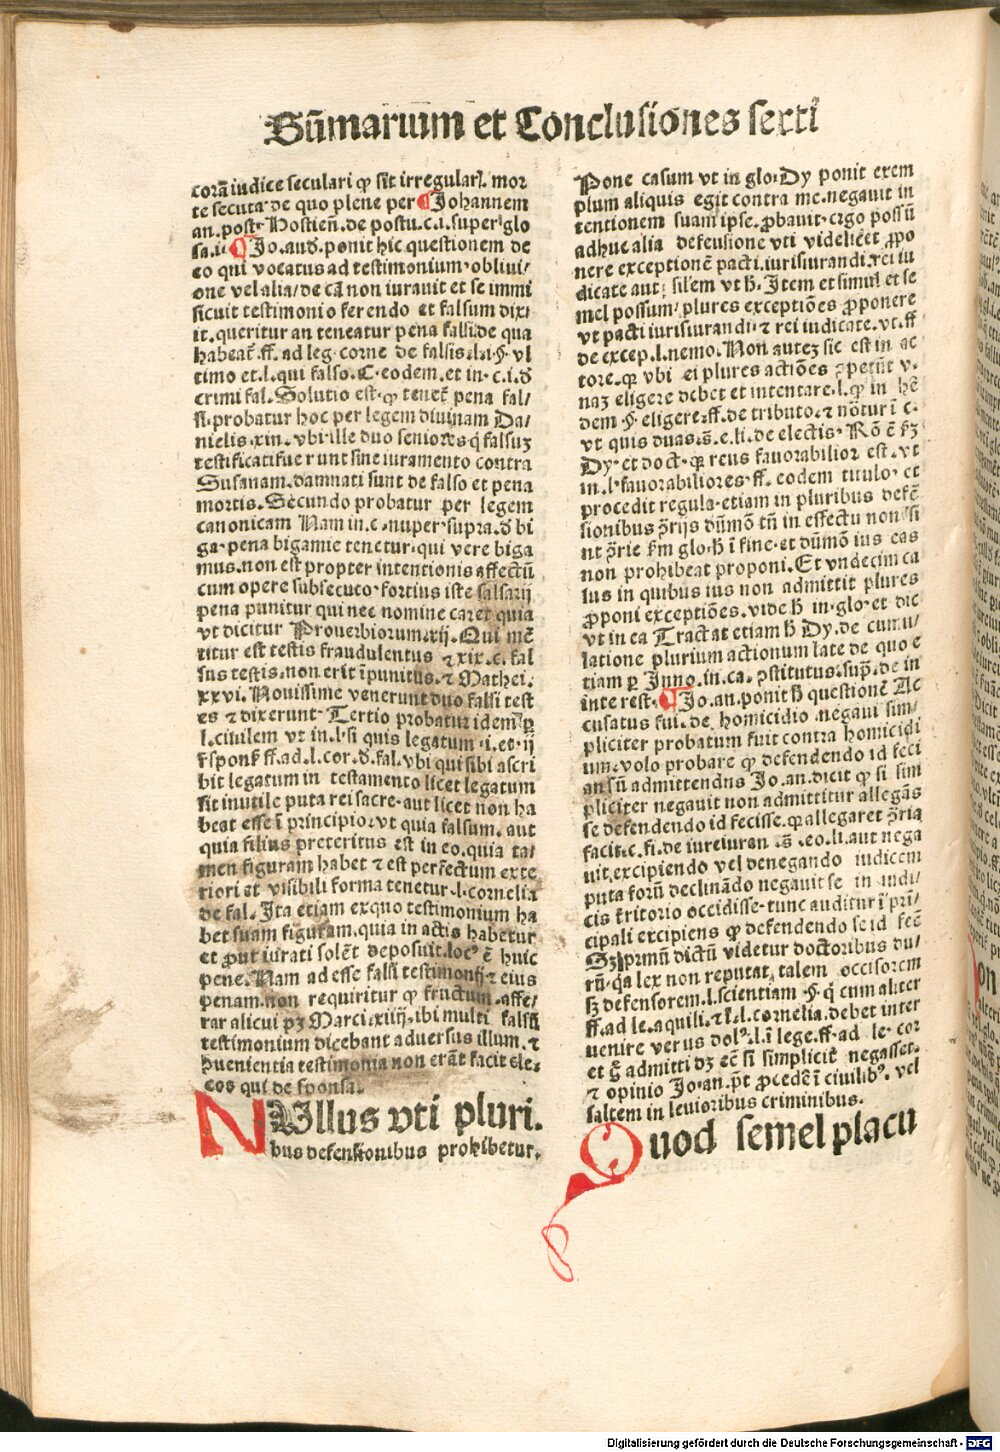 Sūmarium et Conclusiones sexti
corā iudice seculari ꝙ sit irregulaɼ. mor
te secuta de quo plene per ¶ Johannem
an. post. Hostien̄. de postu. c. i. super glo
sa. ii. ¶ Jo. and. ponit hic questionem de
eo qui vocatus ad testimonium. obliui/
one vel alia/de cā non iurauit et se immi
sicuit testimonio ferendo et falsum dixi/
it. queritur an teneatur pena falsi. de qua
habeat̄. ff. ad leg. corne de falsis. l. i. §. vl
timo et. l. qui falso. C. eodem. et in. c. i. ď
crimi fal. Solutio est. ꝙ tenet̄ pena fal/
si. probatur hoc per legem diuinam Da/
nielis. xiii. vbi ille duo seniores q̄ falsuꝫ
testificati fuerunt sine iuramento contra
Susanam. damnati sunt de falso et pena
mortis. Secundo probatur per legem
canonicam Nam in. c. nuper. supra. ď bi
ga. pena bigamie tenetur. qui vere biga
mus. non est propter intentionis affectū
cum opere subsecuto. fortius iste falsarij
pena punitur qui nec nomine caret quia
vt dicitur Prouerbiorum. xij. Qui mē
titur est testis fraudulentus ⁊ xix. c. fal
sus testis. non erit īpunitus. ⁊ Mathei.
xxvi. Nouissime venerunt duo falsi test
es ⁊ dixerunt. Tertio probatur idem ꝑ
l. ciuilem vt in. l. si quis legatum. i. et. ij
r̄spon̄. ff. ad. l. cor. ď. fal. vbi qui sibi ascri
bit legatum in testamento licet legatum
sit inutile puta rei sacre. aut licet non ha
beat esse ī principio. vt quia falsum. aut
quia filius preteritus est in eo. quia ta/
men figuram habet ⁊ est perfectum exte
riori et visibili forma tenetur. l. cornelia
de fal. Ita etiam exquo testimonium ha
bet suam figuram. quia in actis habetur
et ꝓut iurati solēt deposuit. locꝰ ē huic
pene. Nam ad esse falsi testimonij ⁊ eius
penam. non requiritur ꝙ fructum. affe/
rar alicui pꝫ Marci. xiiij. ibi multi falsū
testimonium dicebant aduersus illum. ⁊
huenientia testimonia non erāt facit ele.
cos qui de sponsa.
NUllus vti pluri.
bus defensionibus prohibetur.
Pone casum vt in glo. Dy ponit exem
plum aliquis egit contra me. negauit in
tentionem suam ipse. ꝓbauit. ergo possū
adhuc alia defensione vti videlicet ꝓpo
nere exceptionē pacti. iurisiurandi. rei iu
dicate aut silem vt h̄. Item et simul et se
mel possum plures exceptiōes ꝓponere
vt pacti iurisiurandi. ⁊ rei iudicate. vt. ff
de excep. l. nemo. Non autez sic est in ac
tore. qꝛ vbi ei plures actiōes ꝯpetūt v.
naꝫ eligere debet et intentare. l. ꝙ in hē
dem. §. eligere. ff. de tributo. ⁊ nōtur ī c.
vt quis duas. s̄. e. li. de electis. Rō ē ẜꝫ
Dy. et doct. qꝛ reus fauorabilior est. vt
in. l. fauorabiliores. ff. eodem titulo. et
procedit regula. etiam in pluribus defē
sionibus ꝯrijs dūmō tn̄ in effectu non si
nt ꝯrie ẜm glo. h̄ ī fine. et dūmō ius eas
non prohibeat proponi. Et vndecim ca
sus in quibus ius non admittit plures
ꝓponi exceptiōes. vide h̄ in. glo. et dic
vt in ea Tractat etiam h̄ Dy. de cumu/
latione plurium actionum late de quo e
tiam ꝑ Inno. in. ca. ꝯstitutus. sup̄. de in
inte rest. ¶ Jo. an. ponit h̄ questionē Ac
cusatus fui. de homicidio. negaui sim/
pliciter probatum fuit contra homicidi
um. volo probare ꝙ defendendo id feci
an sū admittendus Jo. an. dicit ꝙ si sim
pliciter negauit non admittitur allegās
se defendendo id fecisse. qꝛ allegaret ꝯria
facit. c. fi. de iureiuran. s̄. eo. li. aut nega
uit. excipiendo vel denegando iudicem
puta forū declinādo negauit se in iudi/
cis t̄ritorio occidisse. tunc auditur ī prī/
cipali excipiens ꝙ defendendo se id fecē
Sꝫ prmū dictū videtur doctoribus du/
rū. qa lex non reputat, talem occisorem
sꝫ defensorem. l. scientiam. §. q̄ cum aliter
ff. ad le. aquili. ⁊ l. l. cornelia. debet inter
uenire verus dolꝰ. l. i lege. ff. ad le. cor
et g̊ admitti dꝫ ec̄ si simplicit̄ negasset.
⁊ opinio Jo. an. pt̄ ꝓcedē ī ciuilibꝰ. vel
saltem in leuioribus criminibus.
Quod semel placu
Digitalisierung gefördert durch die Deutsche Forschungsgemeinschaft - DFG